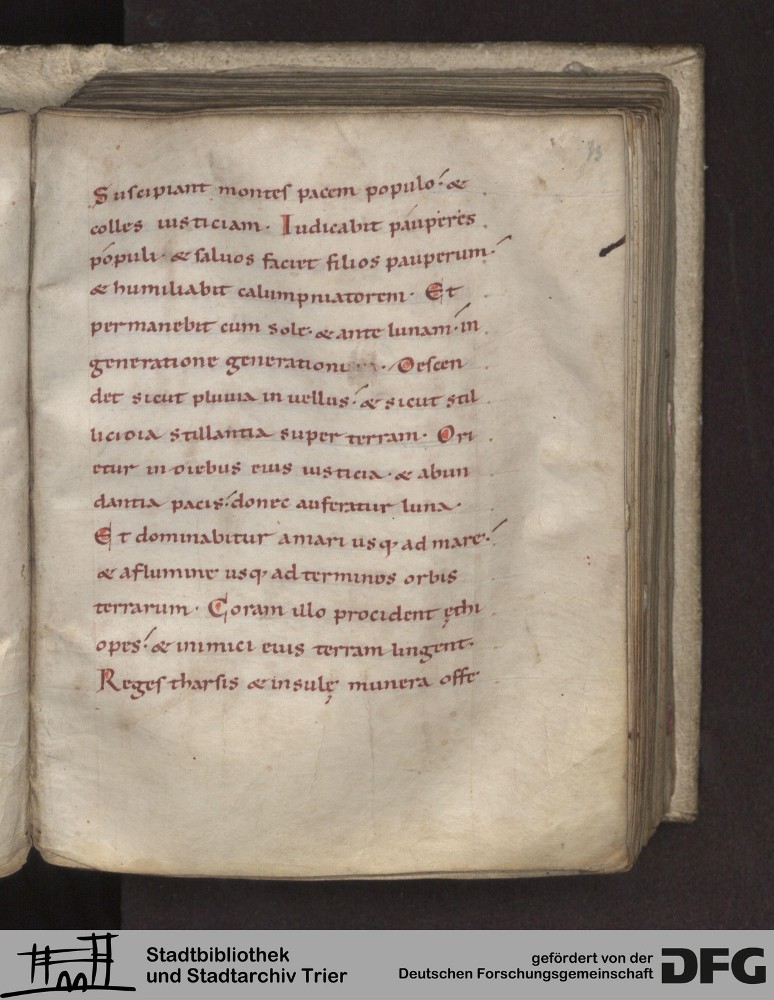 73
Suscipiant montes pacem populo· &
colles iusticiam· Iudicabit pauperes
populi· & saluos faciet filios pauperum·
& humiliabit calumpniatorem· Et
permanebit cum sole· & ante lunam· in
generatione generationi · Descen
det sicut pluuia in uellus· & sicut stil
licidia stillantia super terram· Ori
etur in diebus eius iusticia· & abun
dantia pacis· donec auferatur luna·
Et dominabitur amari usq· ad mare·
& aflumine usq· ad terminos orbis
terrarum· Coram illo procident ęthi
opes· & inimici eius terram lingent·
Reges tharsis & insulę munera offe
Stadtbibliothek
und Stadtarchiv Trier
gefördert von der
Deutschen Forschungsgemeinschaft
DFG